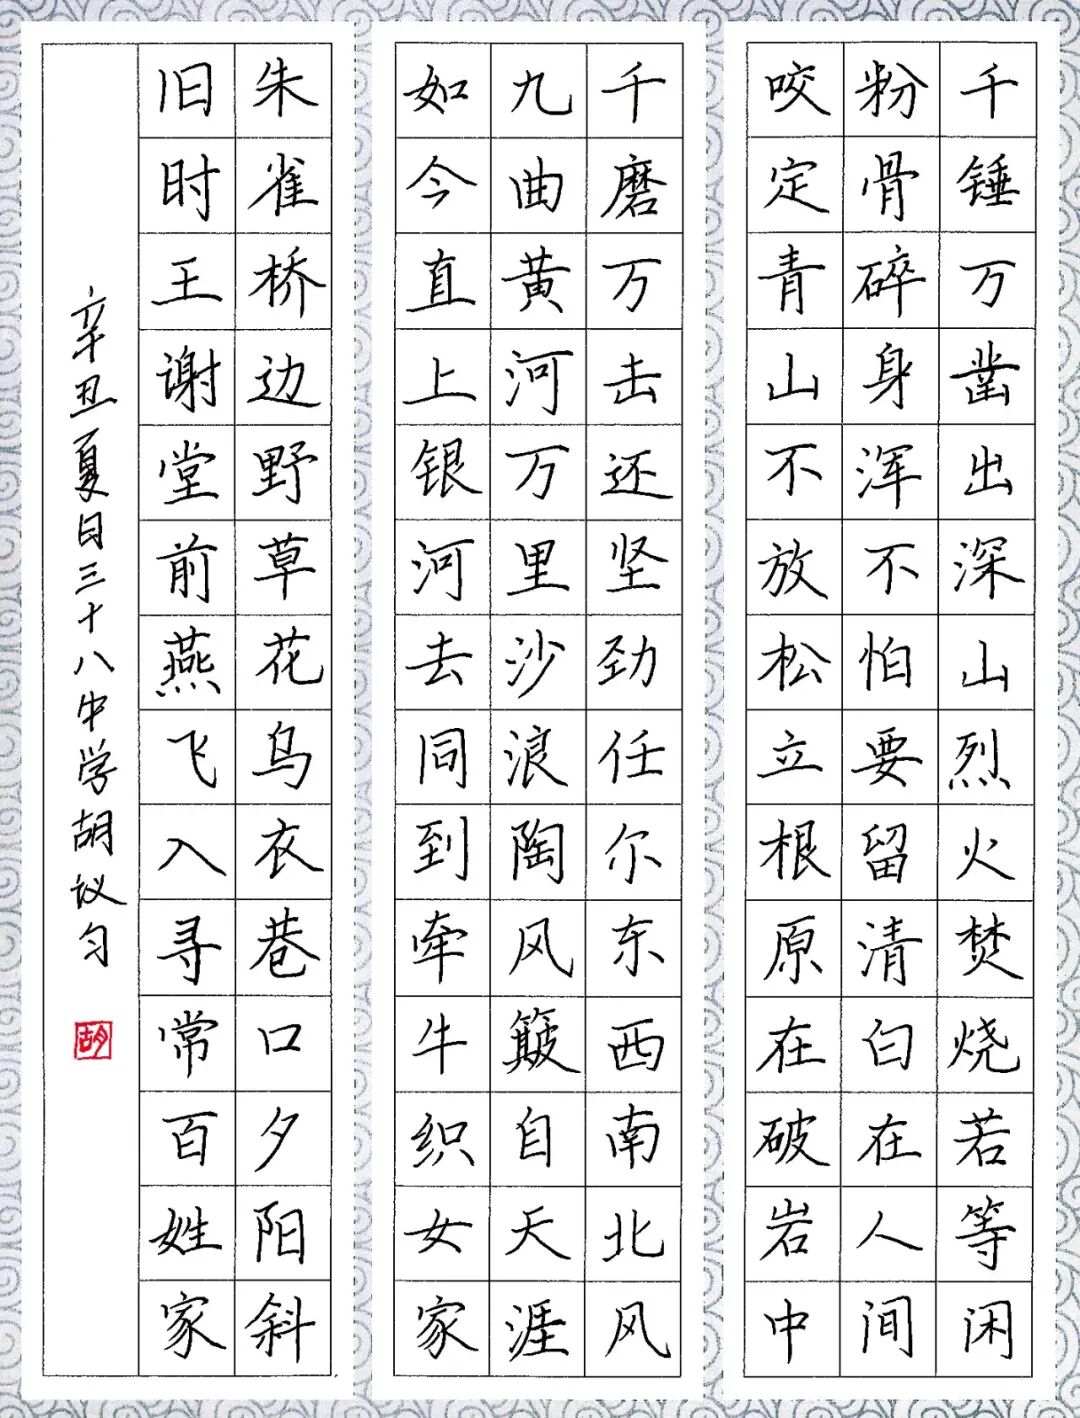 千锤万凿出深山烈火焚烧若等闲
粉骨碎身浑不怕要留清白在人间
咬定青山不放松立根原在破岩中
千磨万击还坚劲任尔东西南北风
九曲黄河万里沙浪陶风簸自天涯
如今直上银河去同到牵牛织女家
朱雀桥边野草花乌衣巷口夕阳斜
旧时王谢堂前燕飞入寻常百姓家
辛丑夏日三十八中学胡议匀
胡